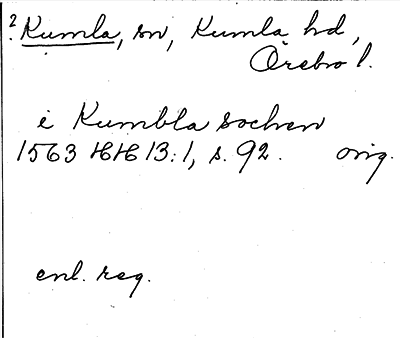 ? Kumla, sn, Kumla hd,
Örebro l.
i Kumbla sochen
1563 HH 13:1, s. 92. orig.
enl. reg.